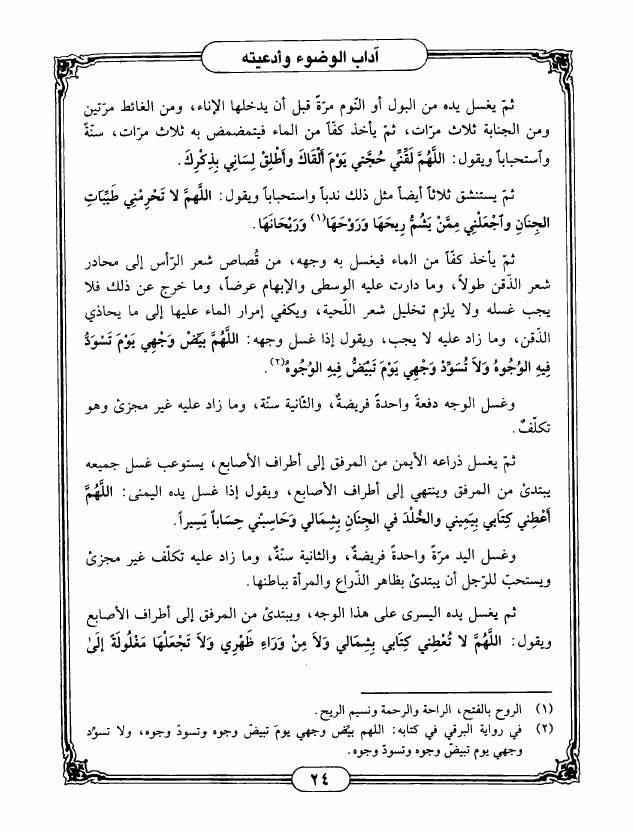 آداب الوضوء وأدعيته
ثمّ يغسل يده من البول أو النّوم مرّةً قبل أن يدخلها الإناء، ومن الغائط مرّتين
ومن الجنابة ثلاث مرّات، ثمّ يأخذ كفّاً من الماء فيتمضمض به ثلاث مرّات، سنّةً
وٱستحباباً ويقول: اللَّهُمَّ لَقِّنِّي حُجَّتي يَوْمَ أَلْقَاكَ وأَطْلِقْ لِسَاني بِذِكْرِكَ.
ثمّ يستنشق ثلاثاً أيضاً مثل ذلك ندباً واستحباباً ويقول: اللَّهمَّ لا تَحْرِمْني طَيِّبَاتِ
الجِنَانِ وٱجْعَلْنِي مِمَّنْ يَشُمُّ رِيحَهَا وَرَوْحَهَا(١) وَرَيْحَانَهَا.
ثمّ يأخذ كفّاً من الماء فيغسل به وجهه، من قُصاص شعر الرّأس إلى محادر
شعر الذّقن طولاً، وما دارت عليه الوسطى والإبهام عرضاً، وما خرج عن ذلك فلا
يجب غسله ولا يلزم تخليل شعر اللّحية، ويكفي إمرار الماء عليها إلى ما يحاذي
الذّقن، وما زاد عليه لا يجب، ويقول إذا غسل وجهه: اللَّهُمَّ بَيِّضْ وَجْهِي يَوْمَ تَسْوَدُّ
فِيهِ الوُجُوهُ وَلاَ تُسَوِّدْ وَجْهِي يَوْمَ تَبْيَضُّ فِيهِ الوُجُوهُ(٢).
وغسل الوجه دفعةً واحدةً فريضةٌ، والثّانية سنّة، وما زاد عليه غير مجزئ وهو
تكلّفٌ.
ثمّ يغسل ذراعه الأيمن من المرفق إلى أطراف الأصابع، يستوعب غسل جميعه
يبتدئ من المرفق وينتهي إلى أطراف الأصابع، ويقول إذا غسل يده اليمنى: اللَّهُمَّ
أَعْطِني كِتَابي بِيَمِيني والخُلْدَ في الجِنَانِ بِشِمَالي وَحَاسِبْني حِسَاباً يَسِيراً.
وغسل اليد مرّةً واحدةً فريضةٌ، والثّانية سنّةٌ، وما زاد عليه تكلّف غير مجزئ
ويستحبّ للرّجل أن يبتدئ بظاهر الذّراع والمرأة بباطنها.
ثم يغسل يده اليسرى على هذا الوجه، ويبتدئ من المرفق إلى أطراف الأصابع
ويقول: اللَّهُمَّ لا تُعْطِني كِتَابي بِشِمَالي وَلاَ مِنْ وَرَاءِ ظَهْرِي وَلاَ تَجْعَلْهَا مَغْلُولَةً إِلَىٰ
(١) الروح بالفتح، الراحة والرحمة ونسيم الريح.
(٢) في رواية البرقي في كتابه: اللهم بيّض وجهي يومَ تبيضّ وجوه وتسودّ وجوه، ولا تسوّد
وجهي يوم تبيضّ وجوه وتسودّ وجوه.
٢٤